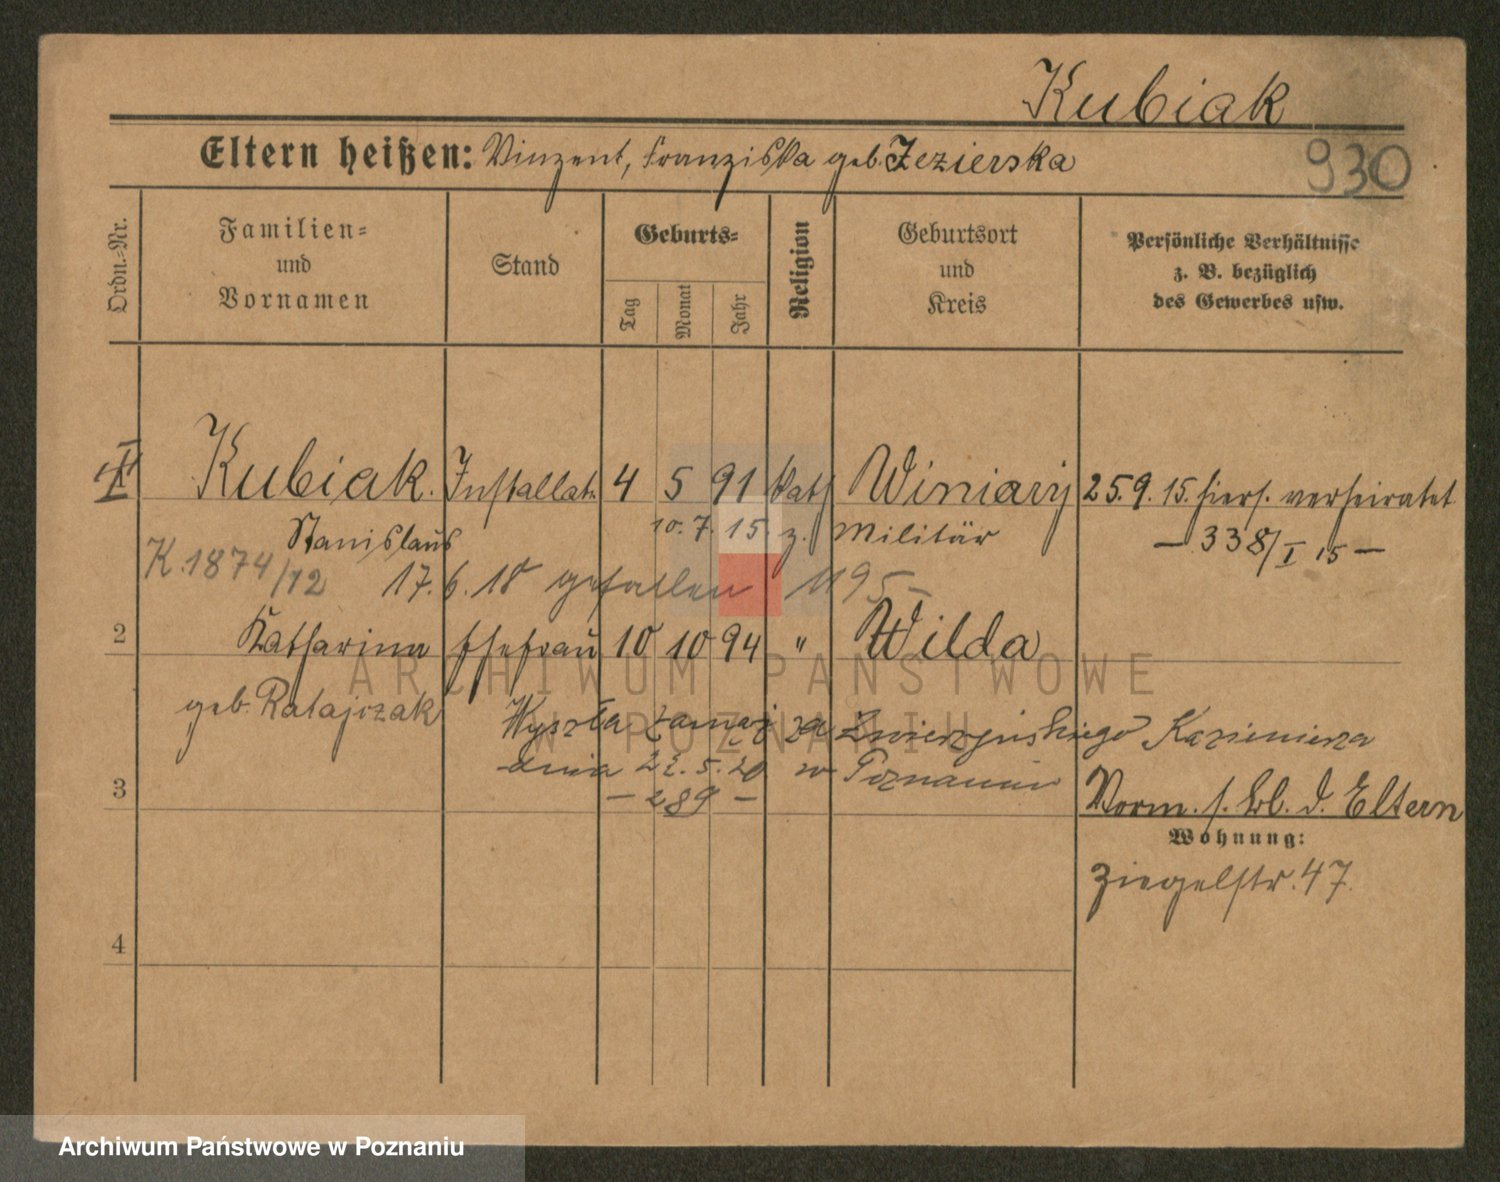 Kubiak
Eltern heißen: Vinzent, Franziska geb. Jezierska
930
Ordn.-Nr.
Familien=
und
Vornamen
Stand
Geburts=
Tag
Monat
Jahr
Religion
Geburtsort
und
Kreis
Persönliche Verhältnisse
z. B. bezüglich
des Gewerbes usw.
Kubiak. Installat. 4 5 91 kath Winiary 25.9.15. hiers. verheiratet
Stanislaus 10.7.15. z. Militär — 338/I 15 —
K 1874/12 17.6.18 gefallen 1195 —
2 Katharina Ehefrau 10 10 94 " Wilda
geb. Ratajczak Wyszła zamąż za Kazimierza
dnia 22.5.20 w Poznaniu
— 289 —
3 Vorm. s. bl. d. Eltern
Wohnung:
Ziegelstr. 47.
4
ARCHIWUM PAŃSTWOWE
W POZNANIU
Archiwum Państwowe w Poznaniu